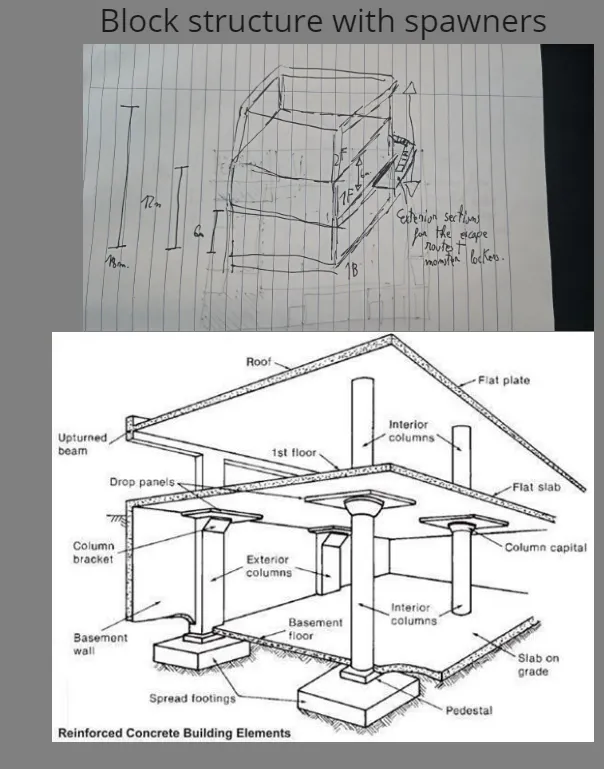 Block structure with spawners
2F
12m
1F
6m
Exterior sections
for the escape
routes +
monster lockers.
18m.
1B
Roof
Flat plate
Interior
columns
Upturned
beam
1st floor
Drop panels
Flat slab
Column
bracket
Exterior
columns
Column capital
Interior
columns
Basement
floor
Basement
wall
Slab on
grade
Spread footings
Pedestal
Reinforced Concrete Building Elements